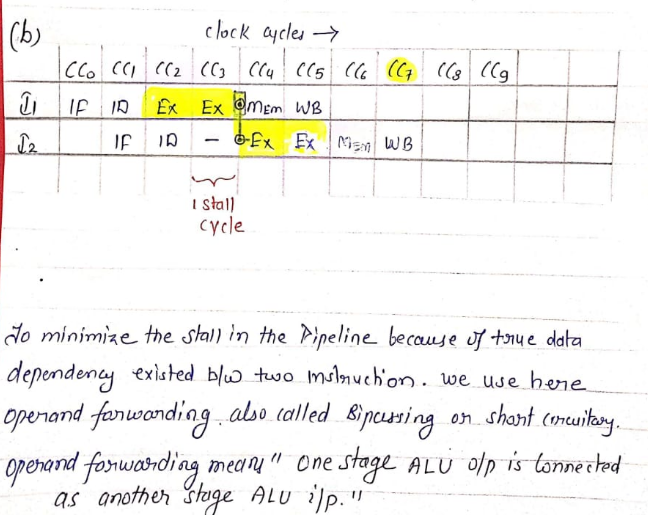 (b)
clock cycles →
CC0 CC1 CC2 CC3 CC4 CC5 CC6 CC7 CC8 CC9
I1 IF ID EX EX MEM WB
I2 IF ID – EX EX MEM WB
1 stall
cycle
To minimize the stall in the Pipeline because of true data
dependency existed b/w two Instruction. we use here
operand forwarding. also called Bipassing or short circuitary.
operand forwarding means " one stage ALU o/p is connected
as another stage ALU i/p."